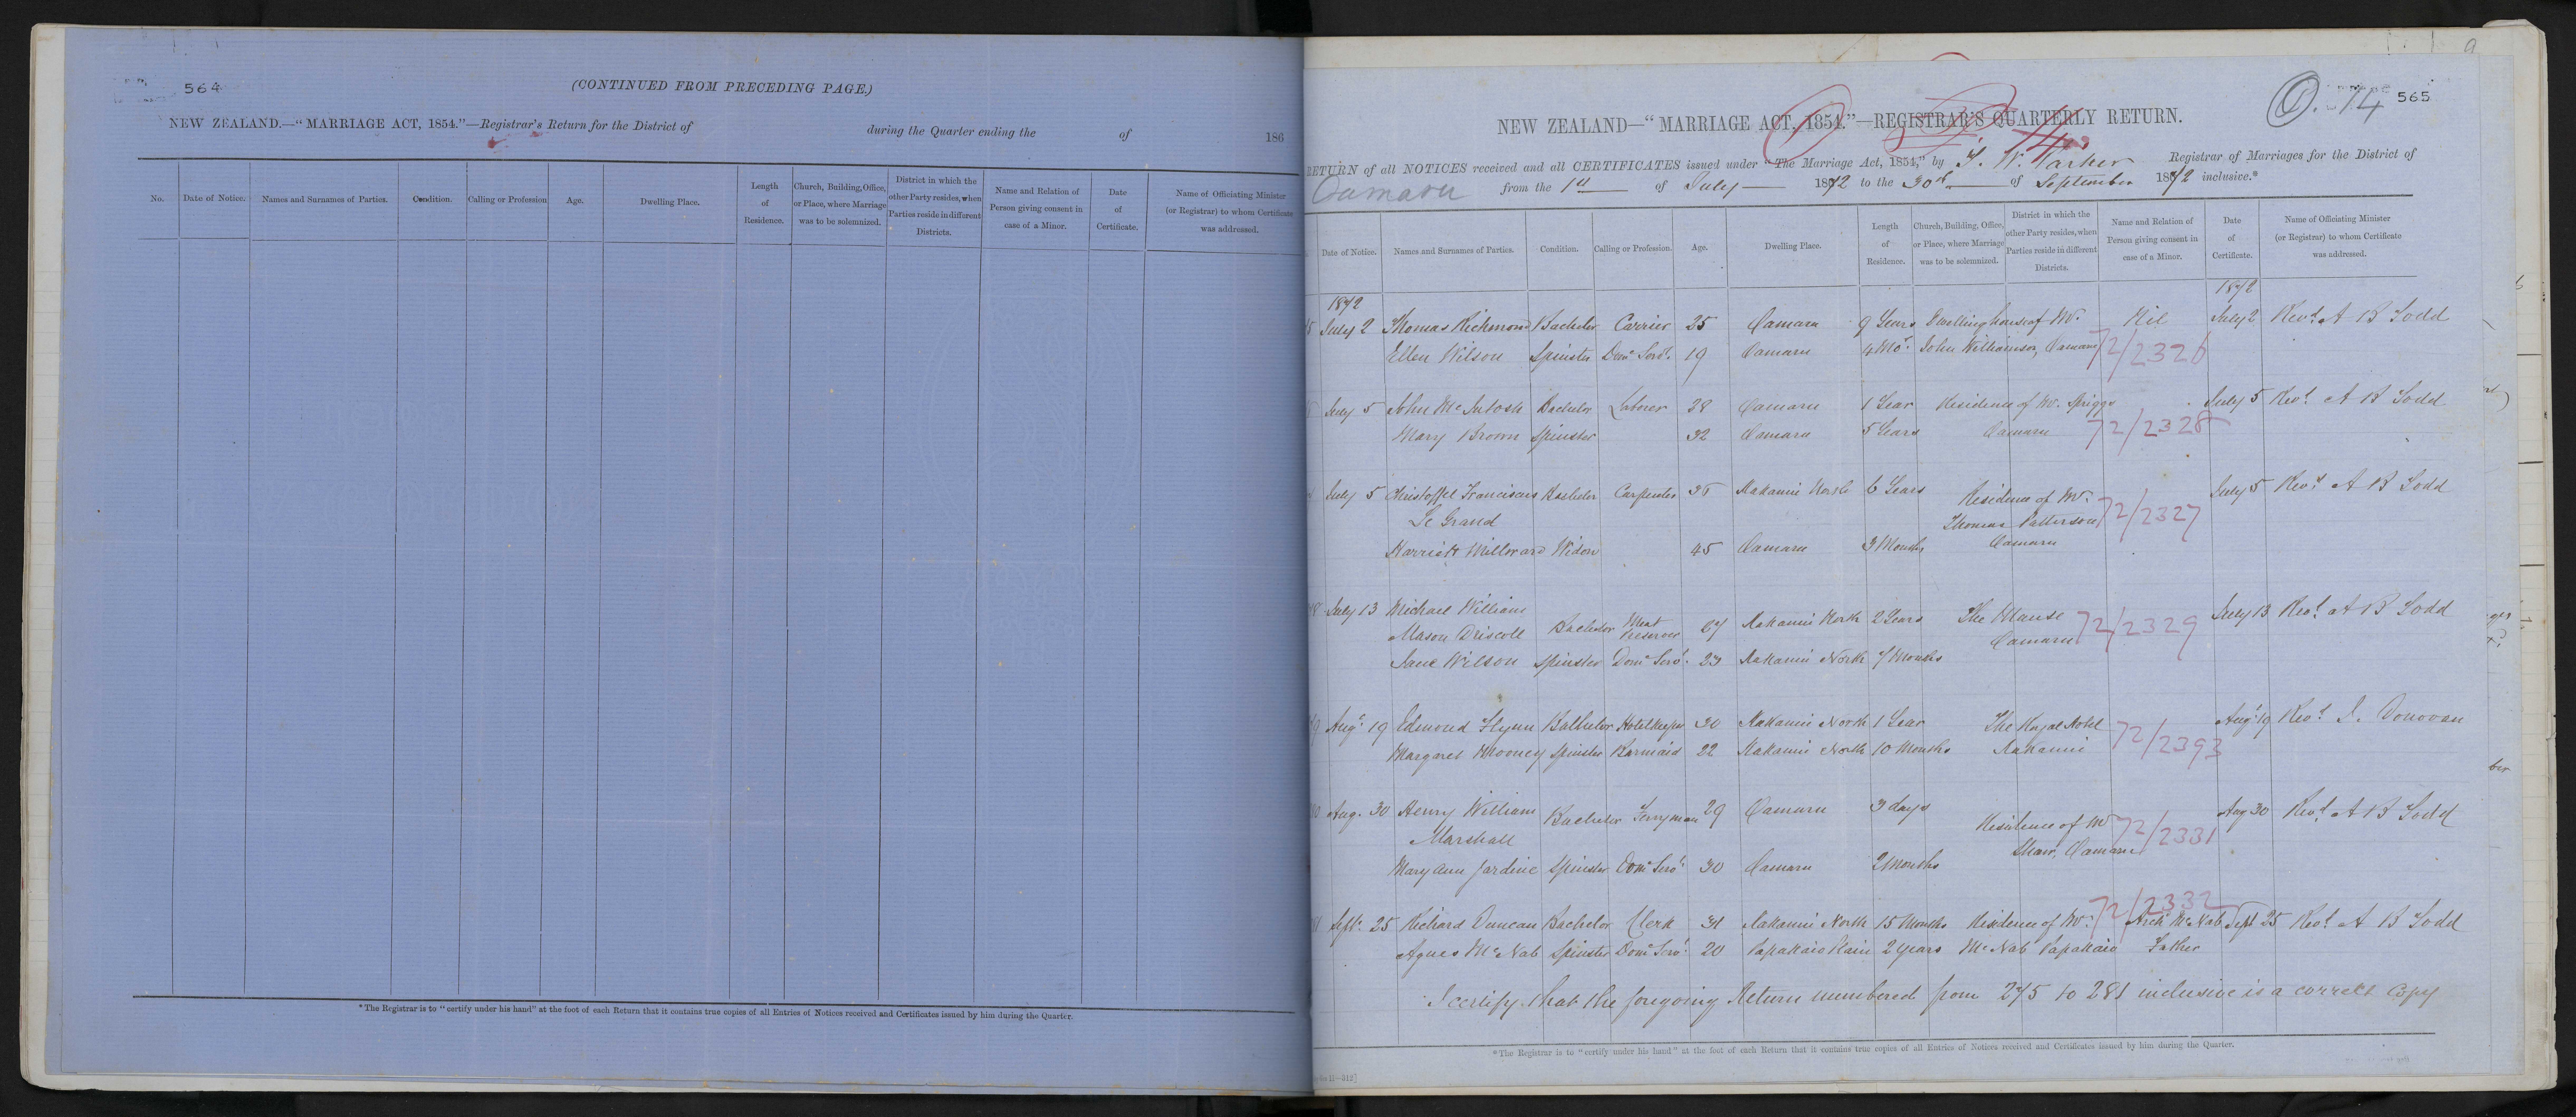 564
(CONTINUED FROM PRECEDING PAGE.)
NEW ZEALAND.—“MARRIAGE ACT, 1854.”—Registrar's Return for the District of during the Quarter ending the of 186
No. Date of Notice. Names and Surnames of Parties. Condition. Calling or Profession Age. Dwelling Place. Length of Residence. Church, Building, Office, or Place, where Marriage was to be solemnized. District in which the other Party resides, when Parties reside in different Districts. Name and Relation of Person giving consent in case of a Minor. Date of Certificate. Name of Officiating Minister (or Registrar) to whom Certificate was addressed.
*The Registrar is to “certify under his hand” at the foot of each Return that it contains true copies of all Entries of Notices received and Certificates issued by him during the Quarter.
O. 14 565
NEW ZEALAND—“MARRIAGE ACT, 1854.”—REGISTRAR'S QUARTERLY RETURN.
14
RETURN of all NOTICES received and all CERTIFICATES issued under “The Marriage Act, 1854,” by T. W. Parker Registrar of Marriages for the District of
Oamaru from the 1st of July 1872 to the 30th of September 1872 inclusive.*
Date of Notice. Names and Surnames of Parties. Condition. Calling or Profession. Age. Dwelling Place. Length of Residence. Church, Building, Office, or Place, where Marriage was to be solemnized. District in which the other Party resides, when Parties reside in different Districts. Name and Relation of Person giving consent in case of a Minor. Date of Certificate. Name of Officiating Minister (or Registrar) to whom Certificate was addressed.
1872 1872
July 2 Thomas Richmond Bachelor Carrier 25 Oamaru 9 Years Dwelling house of Mr. Nil July 2 Revd. A B Todd
Ellen Wilson Spinster Domc Servt. 19 Oamaru 4 Mos. John Williamson, Oamaru 72/2326
July 5 John McIntosh Bachelor Laborer 28 Oamaru 1 Year Residence of Mr. Spriggs July 5 Revd. A B Todd
Mary Brown Spinster 32 Oamaru 5 Years Oamaru 72/2328
July 5 Christoffel Franciscus Bachelor Carpenter Kakanui North 6 Years Residence of Mr. July 5 Revd. A B Todd
Le Grand Thomas Patterson 72/2327
Harriett Millward Widow 45 Oamaru 3 Months Oamaru
July 13 Michael William The Manse July 13 Revd. A B Todd
Mason Driscoll Bachelor Meat Preserver 27 Kakanui North 2 Years Oamaru 72/2329
Jane Wilson Spinster Domc Servt. 23 Kakanui North 7 Months
Augt. 19 Edmond Flynn Bachelor Hotelkeeper 30 Kakanui North 1 Year The Royal Hotel Augt. 19 Revd. Donovan
Margaret Mooney Spinster Barmaid 22 Kakanui North 10 Months Kakanui 72/2393
Aug. 30 Henry William Bachelor Ferryman 29 Oamaru 3 days Residence of Mr Aug 30 Revd. A B Todd
Marshall 72/2331
Mary Ann Jardine Spinster Domc Servt. 30 Oamaru 2 Months Oamaru
72/2332
Septr. 25 Richard Duncan Bachelor Clerk 31 Kakanui North 15 Months Residence of Mr. Archd. McNab Sept 25 Revd. A B Todd
Agnes McNab Spinster Domc Servt. 20 Papakaio Plain 2 years McNab Papakaio Father
I certify that the foregoing Return numbered from 275 to 281 inclusive is a correct Copy
*The Registrar is to “certify under his hand” at the foot of each Return that it contains true copies of all Entries of Notices received and Certificates issued by him during the Quarter.